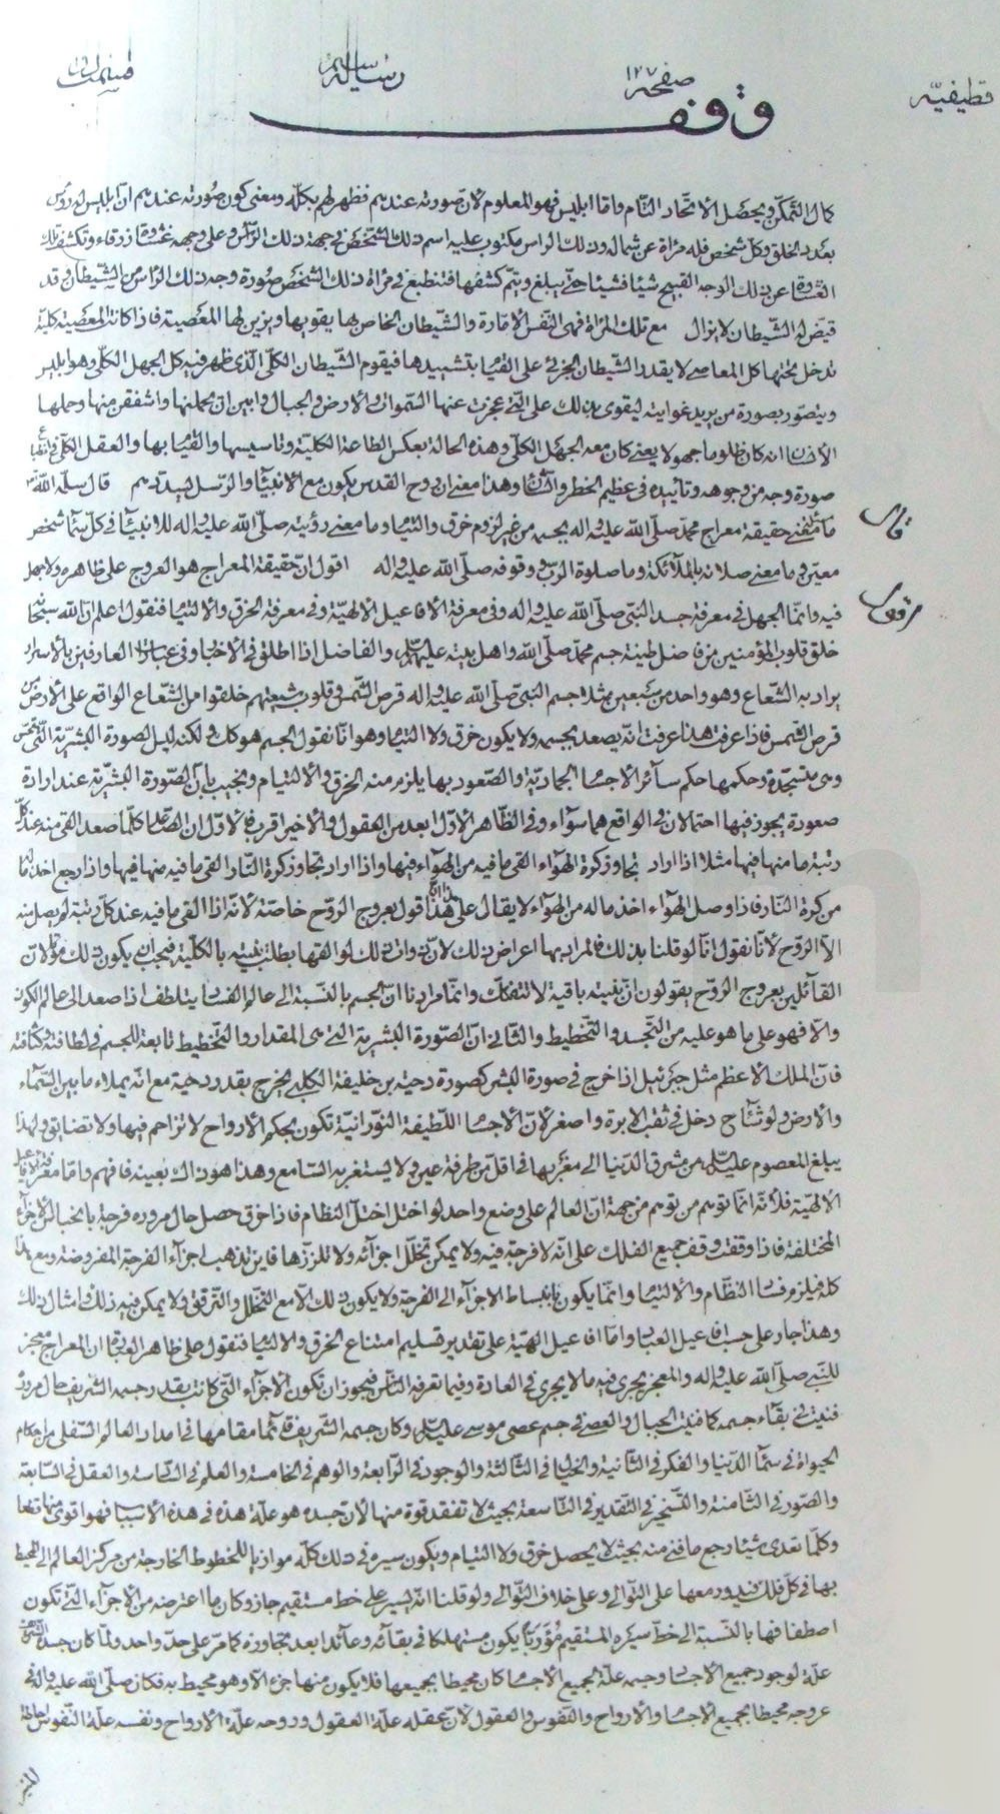 قطیفیّه صفحه ١٢٧ رساله
وقف
كمال التمكّن ويحصل الاتّحاد التّام وامّا ابليس فهو المعلوم لان صورته عندهم فظهر لهم بكلّه ومعنى كون صورته عندهم انّ ابليس له رؤس
بعدد الخلق وكل شخص فله مراة عن شماله وذلك الراس مكتوب عليه اسم ذلك الشخص في جهة ذلك الرّاس وعلى وجهه غشاوة زرقاء وتكشف تلك
الغشاوة عن ذلك الوجه القبيح شيئا فشيئا حتّى يبلغ ويتم كشفها فتنطبع في مراة ذلك الشخص صورة وجه ذلك الرّاس من الشيطان وقد
قيض له الشيطان لا يزال مع تلك المراة فهى النفس الامّارة والشّيطان الخاص بها يقويها ويزين لها المعصية فاذا كانت المعصية كلية
تدخل تحتها كل المعاصى لا يقدر الشيطان الجزئى على القيام بتشييدها فيقوم الشّيطان الكلّى الّذى ظهر فيه كل الجهل الكلّى وهو ابليس
ويتصوّر بصورة من يريد غوايته ليقوى بذلك على الّتى عجزت عنها السّموات والارض والجبال وابين ان يحملنها واشفقن منها وحملها
الانسان انه كان ظلوما جهولا يعنى كان معه الجهل الكلّى وهذه الحالة بعكس الطاعة الكلية وتاسيسها والقيام بها والعقل الكلّى
صورة وجه من وجوهه وتأييده في عظيم الخطر والشان وهذا معنى ان روح القدس يكون مع الانبيآء والرّسل يسدّدهم قال سلّمه الله
قال
ما حقيقة معراج محمّد صلّى الله عليه واله بجسمه من غير لزوم خرق والتيام وما معنى رؤيته صلّى الله عليه واله للانبيآء في كلّ سمآء شخص
معيّن وما معنى صلاته بالملآئكة وما صلوة الربّ ووقوفه صلّى الله عليه واله اقول انّ حقيقة المعراج هو العروج على ظاهره ولا جهل
اقول
فيه وانّما الجهل في معرفة جسد النّبىّ صلّى الله عليه واله وفى معرفة الافاعيل الالهيّة وفى معرفة الخرق والالتيام فنقول اعلم انّ الله سبحانه
خلق قلوب المؤمنين من فاضل طينة جسم محمّد صلّى الله واهل بيته عليهم السلم والفاضل اذا اطلق في الاخبار وفى عبارات العارفين بالاسرار
يراد به الشّعاع وهو واحد من سبعين مثلا جسم النبىّ صلّى الله عليه واله قرص الشّمس وقلوب شيعتهم خلقوا من الشّعاع الواقع على الارض من
قرص الشّمس فاذا عرفت هذا عرفت انّه يصعد بجسمه ولا يكون خرق ولا التيام وهو انّا نقول الجسم هو كذلك ولكنه لبس الصورة البشريّة الّتى
وهى متجسّدة وحكمها حكم سآئر الاجسام الجماديّة والصّعود بها يلزم منه الخرق والالتيام ونجيب بانّ الصّورة البشريّة عند ارادة
صعوده يجوز فيها احتمالان في الواقع هما سوآء وفى الظّاهر الاوّل ابعد من العقول والاخير اقرب فالاوّل ان الصّاعد كلّما صعد القى منه عند كلّ
رتبة ما منها فيها مثلا اذا اراد تجاوز كرة الهوآء القى ما فيه من الهوآء فيها واذا اراد تجاوز كرة النّار القى ما فيه منها فيها واذا رجع اخذ ماله
من كرة النّار فاذا وصل الهوآء اخذ ماله من الهوآء لا يقال على هذا ان هذا قول بعروج الروّح خاصّة لانّه اذا القى ما فيه عند كلّ رتبة لم يصل منه
الّا الروّح لانّا نقول انّا لو قلنا بذلك فالمراد بها اعراض ذلك لان ذوات ذلك لو القيها بطلت بنيته بالكلّية فيجب ان يكون ذلك مؤّلا لان
القآئلين بعروج الروّح يقولون ان بنيته باقية لا تتفكّك وانّما مرادنا ان الجسم بالنّسبة الى عالم الفساد يتلطف اذا صعد الى عالم الكون
والّا فهو على ما هو عليه من التّجسد والتّخطيط والثّانى انّ الصّورة البشرية الّتى هى المقدار والتّخطيط تابعة للجسم في لطافته وكثافته
فانّ الملك الاعظم مثل جبرئيل اذا خرج في صورة البشر كصورة دحية بن خليفة الكلبى يخرج بقدر دحية مع انّه يملاء ما بين السّمآء
والارض ولو شآء دخل في ثقب الابرة واصغر لانّ الاجسام اللّطيفة النّورانيّة تكون بحكم الارواح لا تزاحم فيها ولا تضايق ولهذا
يبلغ المعصوم عليه السلم من مشرق الدّنيا الى مغربها في اقل من طرفة عين ولا يستغربه السّامع وهذا هو ذاك بعينه فافهم وامّا معرفة الافاعيل
الالهيّة فلانّه انّما توهم من توهم من جهة انّ العالم على وضع واحد لو اختل اختلّ النظام فاذا خرق حصل حال مروره فرجة
المختلفة فاذا وقفت وقف جميع الفلك على انّه لا فرجة فيه ولا يمكن تخلّل اجزآئه ولا تلزّزها فاين تذهب اجزآء الفرجة المفروضة ومع هذا
كلّه فيلزم فساد النّظام والالتيام وانّما يكون بانبساط الاجزآء الى الفرجة ولا يكون ذلك الّا مع التخلّل والتّرقّق ولا يمكن فيه ذلك وامثال ذلك
وهذا جار على حسب افاعيل العباد وامّا افاعيل الهية على تقدير تسليم امتناع الخرق والالتيام فنقول على ظاهر العبارة انّ المعراج معجز
للنّبى صلّى الله عليه واله والمعجز يجرى فيه مالا يجرى في العادة وفيما تعرفه النّاس فيجوز ان تكون الاجزآء الّتى كانت بقدر جسمه الشّريف حال مروره
فنيت في بقآء جسمه كما فنيت الحبال والعصى في جسم عصى موسى عليه السلم وكان جسمه الشّريف قآئما مقامها في امداد العالم السّفلى من احكام
الحيوة في سمآء الدّنيا والفكر في الثّانية والخيال في الثّالثة والوجود في الرّابعة والوهم في الخامسة والعلم في السّادسة والعقل في السّابعة
والصّور في الثّامنة والتّسخير في التّقدير في التّاسعة بحيث لا تفقد قوة منها لان جسده هو علّة هذه في هذه الاسباب فهو اقوى منها فعلا
وكلّما تعدى شيئا رجع ما فنى منه بحيث لا يحصل خرق ولا التيام ويكون سيره في ذلك كلّه موازيا للخطوط الخارجة من مركز العالم الى المحيط
بها في كلّ فلك فيدور معها على التّوالى وعلى خلاف التّوالى ولو قلنا انّه يسير على خط مستقيم جاز وكان ما اعترضه من الاجزآء الّتى تكون
اصطفافها بالنّسبة الى خطّ سيره المستقيم يكون مستهلكا في بقآئه وعآئدا بعد تجاوزه كما مرّ على حدّ واحد ولمّا كان جسده الشّريف
علّة لوجود جميع الاجسام وجسمه علّة لجميع الاجسام كان محيطا بجميعها فلا يكون منها جزء الّا وهو محيط به فكان صلّى الله عليه واله في
عروجه محيطا بجميع الاجسام والارواح والنّفوس والعقول لانّ عقله علّة العقول وروحه علّة الارواح ونفسه علّة النّفوس